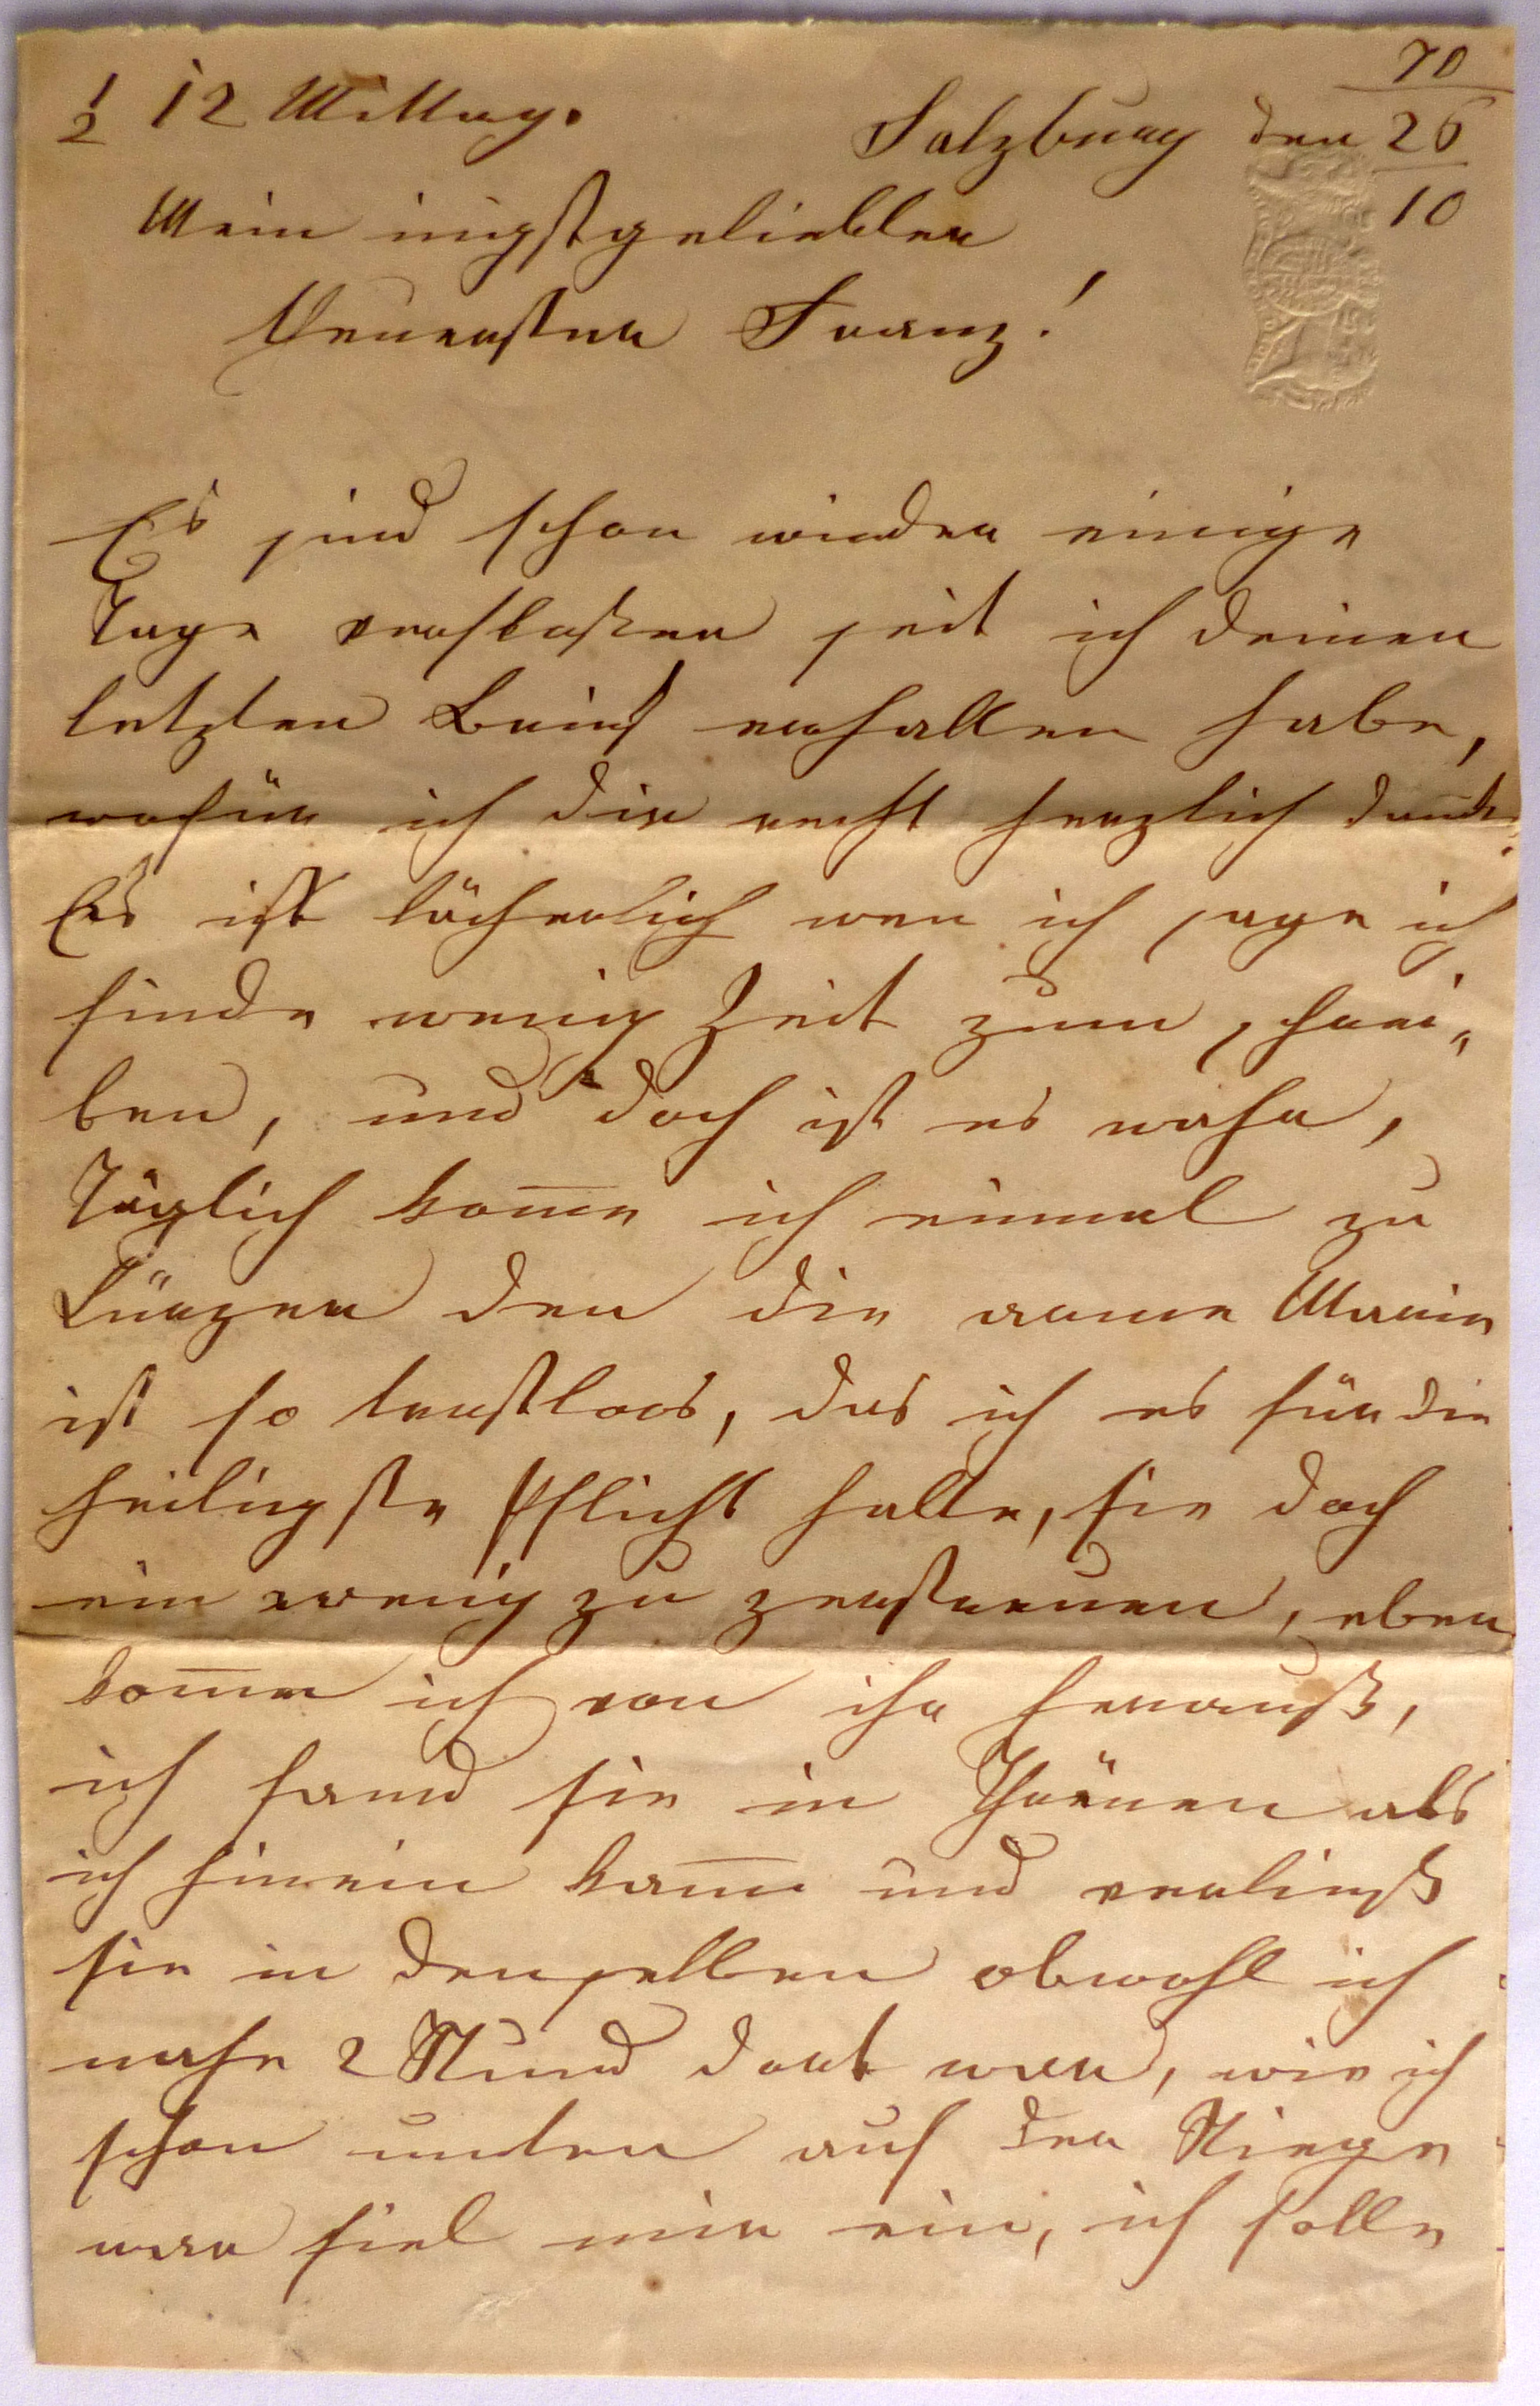 ½ 12 Mittag.
70
Salzburg den 26
10
Mein inigstgeliebter
theuerster Franz!
Es sind schon wieder einige
Tage verfloßen seit ich deinen
letzten Brief erhalten habe,
wofür ich dir recht herzlich danke.
Es ist lächerlich wen ich sage ich
finde wenig Zeit zum schrei„
ben, und doch ist es wahr,
Täglich kom̅e ich einmal zu
Kürzer den die arme Marie
ist so trostloos, das ich es für die
heiligste Pflicht halte, sie doch
ein wenig zu zerstreuen, eben
kom̅e ich von ihr herauß,
ich fand sie in Thränen als
ich hinein kam̅ und verließ
sie in denselben obwohl ich
nahe 2 Stund dort war, wie ich
schon unten auf der Stiege
war fiel mir ein, ich solle